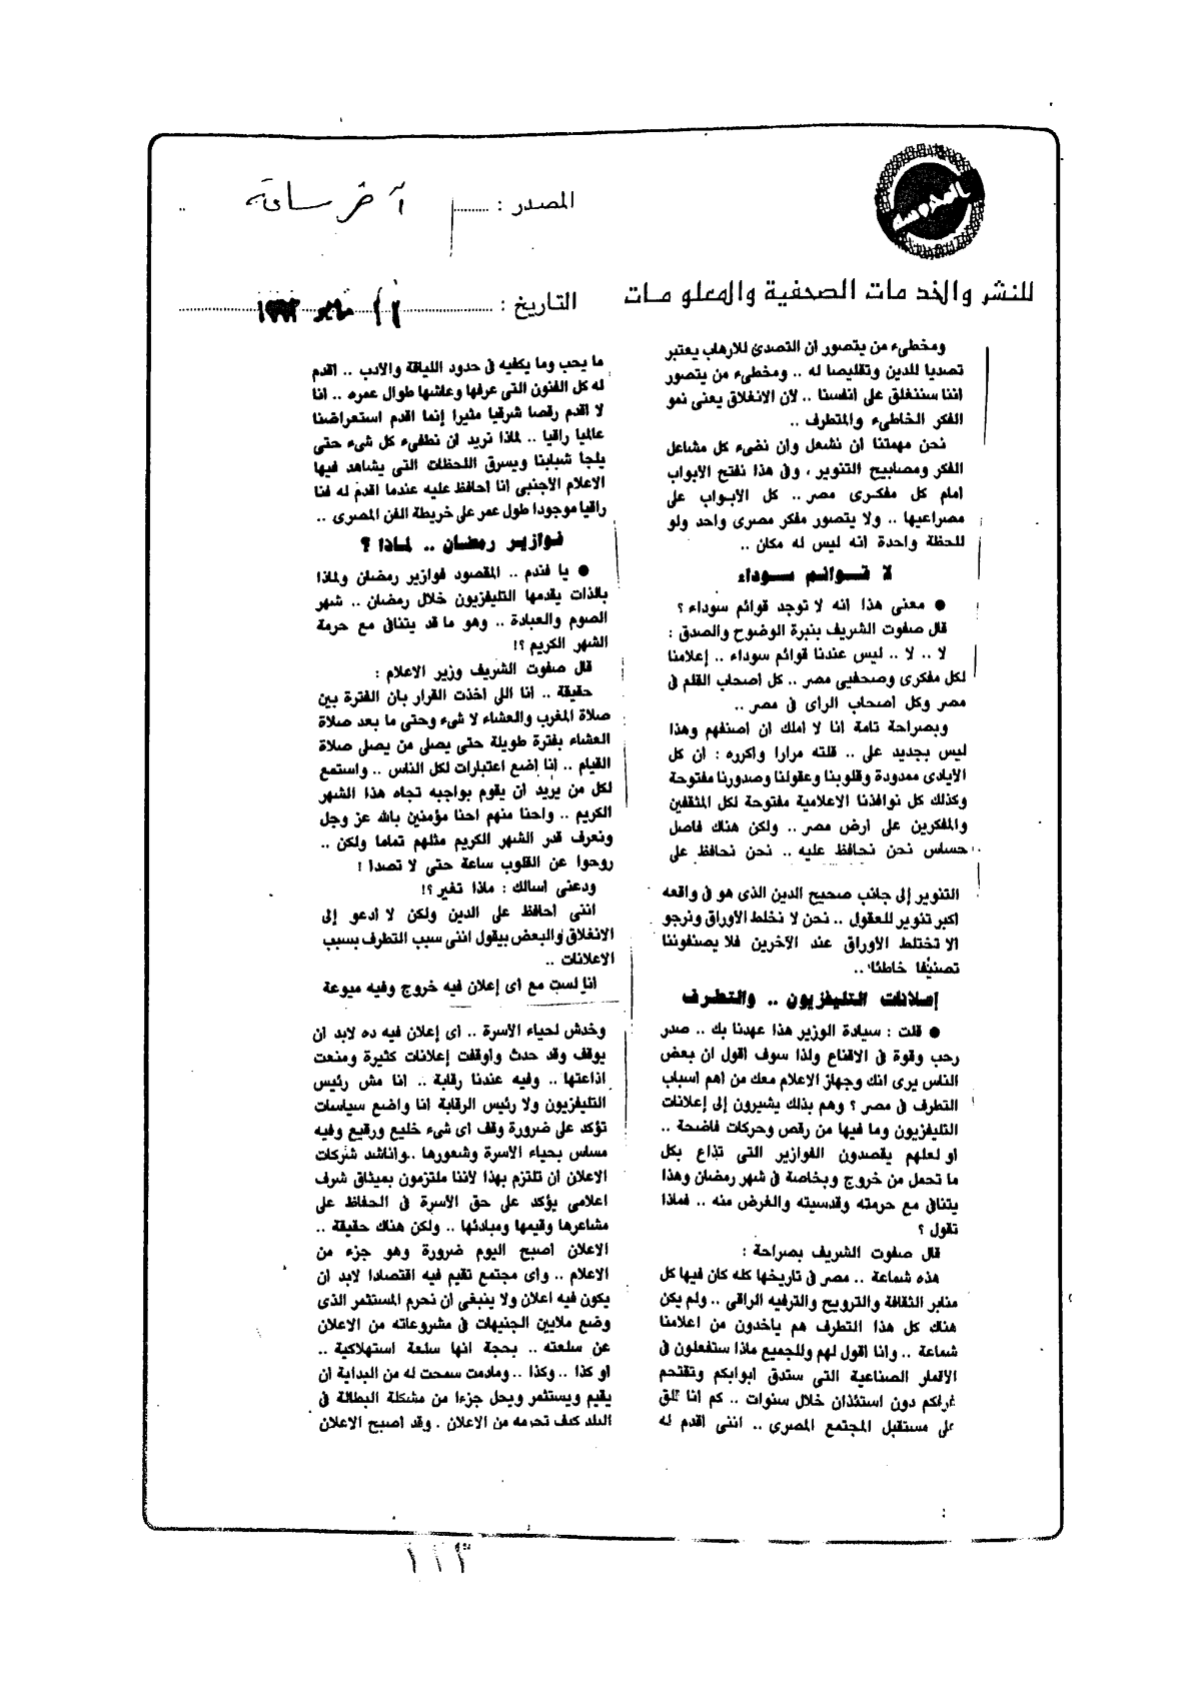 المصدر : آخر ساعة
للنشر والخدمات الصحفية والمعلومات
التاريخ : مايو
ومخطىء من يتصور ان التصدى للارهاب يعتبر
تصديا للدين وتقليصا له .. ومخطىء من يتصور
اننا سننغلق على انفسنا .. لأن الانغلاق يعنى نمو
الفكر الخاطىء والمتطرف ..
نحن مهمتنا ان نشعل وان نضىء كل مشاعل
الفكر ومصابيح التنوير ، وفى هذا نفتح الابواب
امام كل مفكرى مصر .. كل الابواب على
مصراعيها .. ولا يتصور مفكر مصرى واحد ولو
للحظة واحدة انه ليس له مكان ..
لا قوائم سوداء
● معنى هذا انه لا توجد قوائم سوداء ؟
قال صفوت الشريف بنبرة الوضوح والصدق :
لا .. لا .. ليس عندنا قوائم سوداء .. إعلامنا
لكل مفكرى وصحفيى مصر .. كل اصحاب القلم فى
مصر وكل اصحاب الراى فى مصر ..
وبصراحة تامة انا لا املك ان اصنفهم وهذا
ليس بجديد على .. قلته مرارا واكرره : ان كل
الايادى ممدودة وقلوبنا وعقولنا وصدورنا مفتوحة
وكذلك كل نوافذنا الاعلامية مفتوحة لكل المثقفين
والمفكرين على ارض مصر .. ولكن هناك فاصل
حساس نحن نحافظ عليه .. نحن نحافظ على
التنوير إلى جانب صحيح الدين الذى هو فى واقعه
اكبر تنوير للعقول .. نحن لا نخلط الاوراق ونرجو
الا تختلط الاوراق عند الآخرين فلا يصنفوننا
تصنيفا خاطئا ..
إعلانات التليفزيون .. والتطرف
● قلت : سيادة الوزير هذا عهدنا بك .. صدر
رحب وقوة فى الاقناع ولذا سوف اقول ان بعض
الناس يرى انك وجهاز الاعلام معك من اهم اسباب
التطرف فى مصر ؟ وهم بذلك يشيرون إلى إعلانات
التليفزيون وما فيها من رقص وحركات فاضحة ..
او لعلهم يقصدون الفوازير التى تذاع بكل
ما تحمل من خروج وبخاصة فى شهر رمضان وهذا
يتنافى مع حرمته وقدسيته والغرض منه .. فماذا
تقول ؟
قال صفوت الشريف بصراحة :
هذه شماعة .. مصر فى تاريخها كله كان فيها كل
منابر الثقافة والترويح والترفيه الراقى .. ولم يكن
هناك كل هذا التطرف هم ياخدون من اعلامنا
شماعة .. وانا اقول لهم وللجميع ماذا ستفعلون فى
الاقمار الصناعية التى ستدق ابوابكم وتقتحم
غرفكم دون استئذان خلال سنوات .. كم انا قلق
على مستقبل المجتمع المصرى .. اننى اقدم له
ما يحب وما يكفيه فى حدود اللياقة والادب .. اقدم
له كل الفنون التى عرفها وعاشها طوال عمره .. انا
لا اقدم رقصا شرقيا مثيرا إنما اقدم استعراضنا
عالميا راقيا .. لماذا تريد ان نطفىء كل شىء حتى
يلجا شبابنا ويسرق اللحظات التى يشاهد فيها
الاعلام الاجنبى انا احافظ عليه عندما اقدم له فنا
راقيا موجودا طول عمر على خريطة الفن المصرى ..
فوازير رمضان .. لماذا ؟
● يا فندم .. المقصود فوازير رمضان ولماذا
بالذات يقدمها التليفزيون خلال رمضان .. شهر
الصوم والعبادة .. وهو ما قد يتنافى مع حرمة
الشهر الكريم ؟!
قال صفوت الشريف وزير الاعلام :
حقيقة .. انا اللى اخذت القرار بان الفترة بين
صلاة المغرب والعشاء لا شىء وحتى ما بعد صلاة
العشاء بفترة طويلة حتى يصلى من يصلى صلاة
القيام .. انا اضع اعتبارات لكل الناس .. واستمع
لكل من يريد ان يقوم بواجبه تجاه هذا الشهر
الكريم .. واحنا منهم احنا مؤمنين بالله عز وجل
ونعرف قدر الشهر الكريم مثلهم تماما ولكن ..
روحوا عن القلوب ساعة حتى لا تصدا !
ودعنى اسالك : ماذا تغير ؟!
اننى احافظ على الدين ولكن لا ادعو إلى
الانغلاق والبعض بيقول اننى سبب التطرف بسبب
الاعلانات ..
انا لست مع اى إعلان فيه خروج وفيه ميوعة
وخدش لحياء الاسرة .. اى إعلان فيه ده لابد ان
يوقف وقد حدث واوقفت إعلانات كثيرة ومنعت
اذاعتها .. وفيه عندنا رقابة .. انا مش رئيس
التليفزيون ولا رئيس الرقابة انا واضع سياسات
تؤكد على ضرورة وقف اى شىء خليع ورقيع وفيه
مساس بحياء الاسرة وشعورها .. واناشد شركات
الاعلان ان تلتزم بهذا لأننا ملتزمون بميثاق شرف
اعلامى يؤكد على حق الأسرة فى الحفاظ على
مشاعرها وقيمها ومبادئها .. ولكن هناك حقيقة ..
الاعلان اصبح اليوم ضرورة وهو جزء من
الاعلام .. واى مجتمع تقيم فيه اقتصادا لابد ان
يكون فيه اعلان ولا ينبغى ان نحرم المستثمر الذى
وضع ملايين الجنيهات فى مشروعاته من الاعلان
عن سلعته .. بحجة انها سلعة استهلاكية ..
او كذا .. وكذا .. ومادمت سمحت له من البداية ان
يقيم ويستثمر ويحل جزءا من مشكلة البطالة فى
البلد كيف تحرمه من الاعلان . وقد اصبح الاعلان